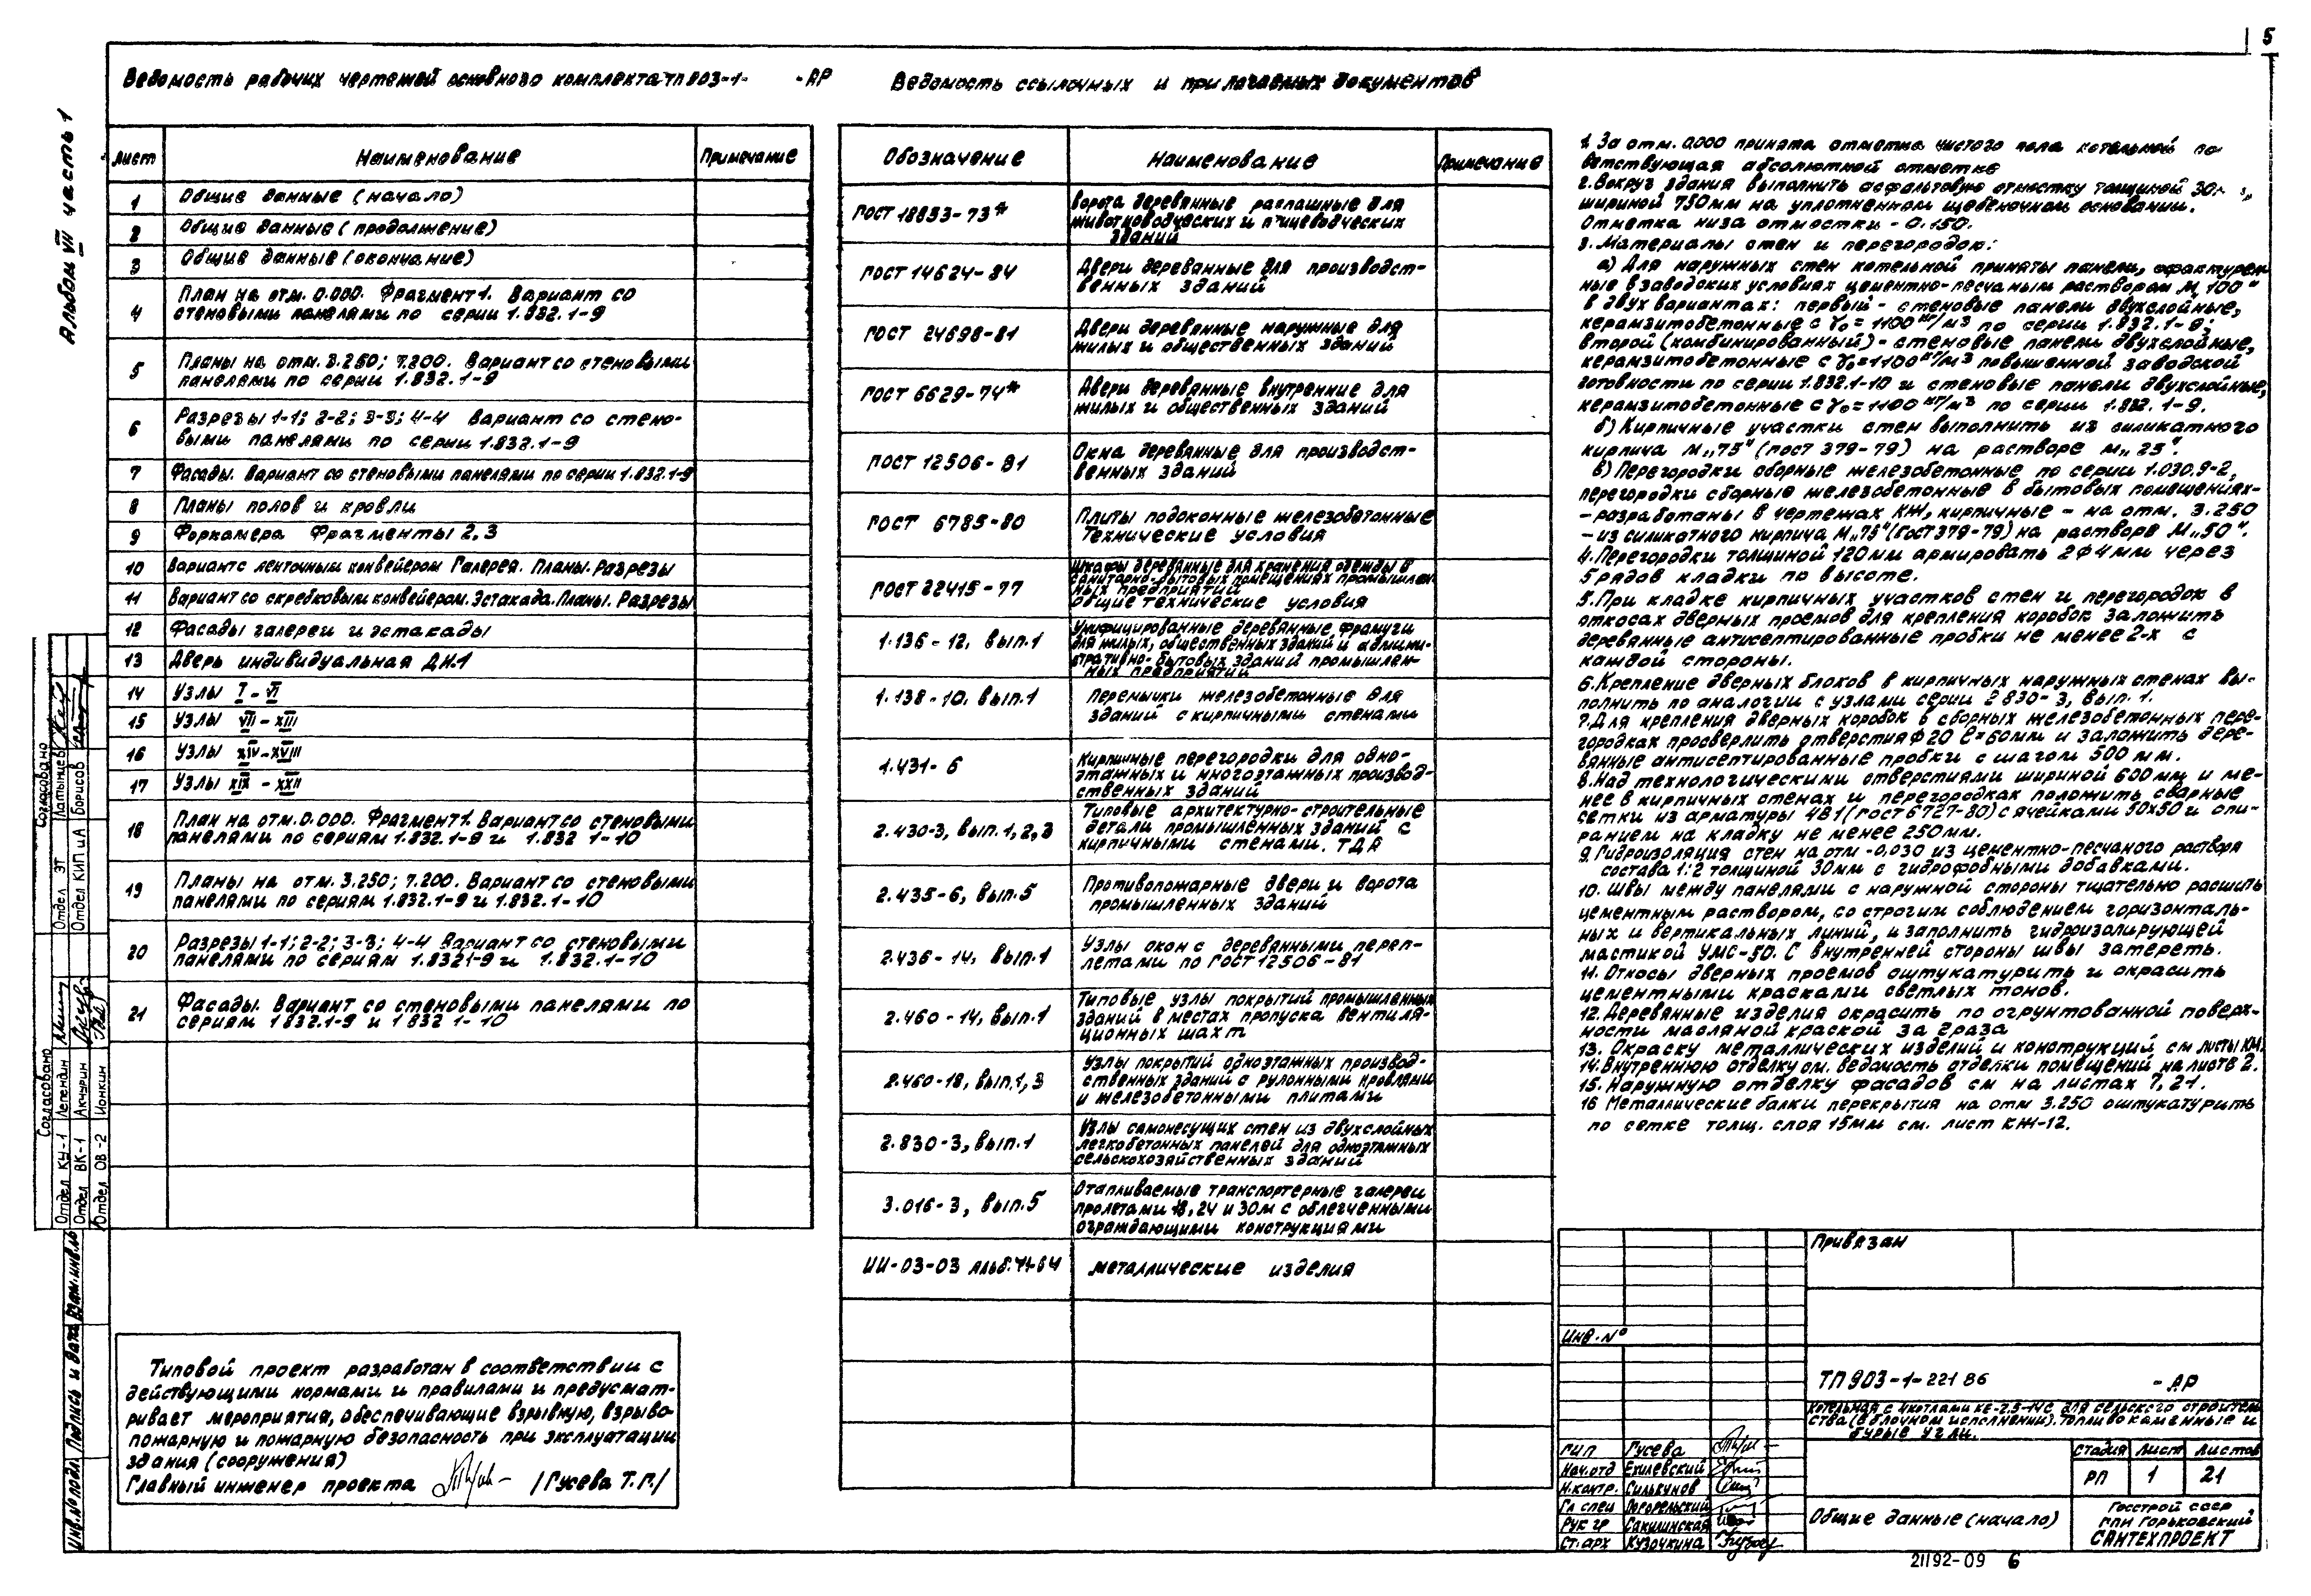 5
Альбом VII часть 1
Ведомость рабочих чертежей основного комплекта ТП 903-1- -АР
Лист Наименование Примечание
1 Общие данные (начало)
2 Общие данные (продолжение)
3 Общие данные (окончание)
4 План на отм. 0.000. Фрагмент 1. Вариант со
стеновыми панелями по серии 1.832.1-9
5 Планы на отм. 3.250; 7.200. Вариант со стеновыми
панелями по серии 1.832.1-9
6 Разрезы 1-1; 2-2; 3-3; 4-4 Вариант со стено-
выми панелями по серии 1.832.1-9
7 Фасады. Вариант со стеновыми панелями по серии 1.832.1-9
8 Планы полов и кровли
9 Форкамера Фрагменты 2,3
10 Вариант с ленточным конвейером Галерея. Планы. Разрезы
11 Вариант со скребковым конвейером. Эстакада. Планы. Разрезы
12 Фасады галереи и эстакады
13 Дверь индивидуальная ДН.1
14 Узлы I-VI
15 Узлы VII-XIII
16 Узлы XIV-XVIII
17 Узлы XIX-XXII
18 План на отм. 0.000. Фрагмент 1. Вариант со стеновыми
панелями по сериям 1.832.1-9 и 1.832 1-10
19 Планы на отм. 3.250; 7.200. Вариант со стеновыми
панелями по сериям 1.832.1-9 и 1.832.1-10
20 Разрезы 1-1; 2-2; 3-3; 4-4 Вариант со стеновыми
панелями по сериям 1.8321-9 и 1.832.1-10
21 Фасады. Вариант со стеновыми панелями по
сериям 1832.1-9 и 1832 1-10
Типовой проект разработан в соответствии с
действующими нормами и правилами и предусмат-
ривает мероприятия, обеспечивающие взрывную, взрыво-
пожарную и пожарную безопасность при эксплуатации
здания (сооружения)
Главный инженер проекта /Гусева Т.Г./
Ведомость ссылочных и прилагаемых документов
Обозначение Наименование Примечание
ГОСТ 18853-73* Ворота деревянные распашные для
животноводческих и птицеводческих
зданий
ГОСТ 14624-84 Двери деревянные для производст-
венных зданий
ГОСТ 24698-81 Двери деревянные наружные для
жилых и общественных зданий
ГОСТ 6629-74* Двери деревянные внутренние для
жилых и общественных зданий
ГОСТ 12506-81 Окна деревянные для производст-
венных зданий
ГОСТ 6785-80 Плиты подоконные железобетонные
Технические условия
ГОСТ 22415-77 Шкафы деревянные для хранения одежды в
санитарно-бытовых помещениях промышлен
ных предприятий
Общие технические условия
1.136-12, вып.1 Унифицированные деревянные фрамуги
для жилых, общественных зданий и админи-
стративно-бытовых зданий промышлен-
ных предприятий
1.138-10, вып.1 Перемычки железобетонные для
зданий с кирпичными стенами
1.431-6 Кирпичные перегородки для одно-
этажных и многоэтажных производ-
ственных зданий
2.430-3, вып.1,2,3 Типовые архитектурно-строительные
детали промышленных зданий с
кирпичными стенами. ТДА
2.435-6, вып.5 Противопожарные двери и ворота
промышленных зданий
2.436-14, вып.1 Узлы окон с деревянными переп-
летами по ГОСТ 12506-81
2.460-14, вып.1 Типовые узлы покрытий промышленных
зданий в местах пропуска вентиля-
ционных шахт
2.460-18, вып.1,3 Узлы покрытий одноэтажных производ-
ственных зданий с рулонными кровлями
и железобетонными плитами
2.830-3, вып.1 Узлы самонесущих стен из двухслойных
легкобетонных панелей для одноэтажных
сельскохозяйственных зданий
3.016-3, вып.5 Отапливаемые транспортерные галереи
пролетами 18, 24 и 30м с облегченными
ограждающими конструкциями
ИИ-03-03 Металлические изделия
1. За отм. 0.000 принята отметка чистого пола котельной со-
ответствующая абсолютной отметке
2. Вокруг здания выполнить асфальтовую отмостку толщиной 30
шириной 750мм на уплотненном щебеночном основании.
Отметка низа отмостки -0.150.
3. Материалы стен и перегородок:
а) Для наружных стен котельной приняты панели, офактурен
ные в заводских условиях цементно-песчаным раствором М„100"
в двух вариантах: первый - стеновые панели двухслойные,
керамзитобетонные с γо=1100 кг/м3 по серии 1.832.1-9;
второй (комбинированный) - стеновые панели двухслойные,
керамзитобетонные с γо=1100 кг/м3 повышенной заводской
готовности по серии 1.832.1-10 и стеновые панели двухслойные,
керамзитобетонные с γо=1100 кг/м3 по серии 1.832.1-9.
б) Кирпичные участки стен выполнить из силикатного
кирпича М„75" (ГОСТ 379-79) на растворе М„25".
в) Перегородки сборные железобетонные по серии 1.030.9-2,
перегородки сборные железобетонные в бытовых помещениях-
-разработаны в чертежах КЖ, кирпичные - на отм. 3.250
-из силикатного кирпича М„75" (ГОСТ 379-79) на растворе М„50".
4. Перегородки толщиной 120мм армировать 2ф4мм через
5 рядов кладки по высоте.
5. При кладке кирпичных участков стен и перегородок в
откосах дверных проемов для крепления коробок заложить
деревянные антисептированные пробки не менее 2-х с
каждой стороны.
6. Крепление дверных блоков в кирпичных наружных стенах вы-
полнить по аналогии с узлами серии 2 830-3, вып.1.
7. Для крепления дверных коробок в сборных железобетонных пере-
городках просверлить отверстия ф20 ℓ=60мм и заложить дере-
вянные антисептированные пробки с шагом 500 мм.
8. Над технологическими отверстиями шириной 600мм и ме-
нее в кирпичных стенах и перегородках положить сварные
сетки из арматуры 4В1 (ГОСТ 6727-80) с ячейками 50х50 и опи-
ранием на кладку не менее 250мм.
9. Гидроизоляция стен на отм -0,030 из цементно-песчаного раствора
состава 1:2 толщиной 30мм с гидрофобными добавками.
10. Швы между панелями с наружной стороны тщательно расшить
цементным раствором, со строгим соблюдением горизонталь-
ных и вертикальных линий, и заполнить гидроизолирующей
мастикой УМС-50. С внутренней стороны швы затереть.
11. Откосы дверных проемов оштукатурить и окрасить
цементными красками светлых тонов.
12. Деревянные изделия окрасить по огрунтованной поверх-
ности масляной краской за 2 раза
13. Окраску металлических изделий и конструкций см листы КМ.
14. Внутреннюю отделку см. ведомость отделки помещений на листе 2.
15. Наружную отделку фасадов см на листах 7, 21.
16 Металлические балки перекрытия на отм 3.250 оштукатурить
по сетке толщ. слоя 15мм см. лист КЖ-12.
Привязан
Инв. №
ТП 903-1-221 86 -АР
Котельная с 4 котлами КЕ-2.5-14С для сельского строитель
ства (в блочном исполнении). Топливо каменные и
бурые угли.
ГИП Гусева
Нач.отд Ехилевский
Н.контр. Силькунов
Гл спец Погорельский
Рук гр Сакилинская
Ст.арх Кузочкина
Стадия Лист Листов
РП 1 21
Общие данные (начало)
Госстрой СССР
ГПИ Горьковский
САНТЕХПРОЕКТ
21192-09 6
Согласовано
Отдел ЭТ Латынцев
Отдел КИП и А Борисов
Согласовано
Отдел КУ-1 Лепендин
Отдел ВК-1 Акчурин
Отдел ОВ-2 Ионкин
Инв.№ подл. Подпись и дата Взам.инв.№